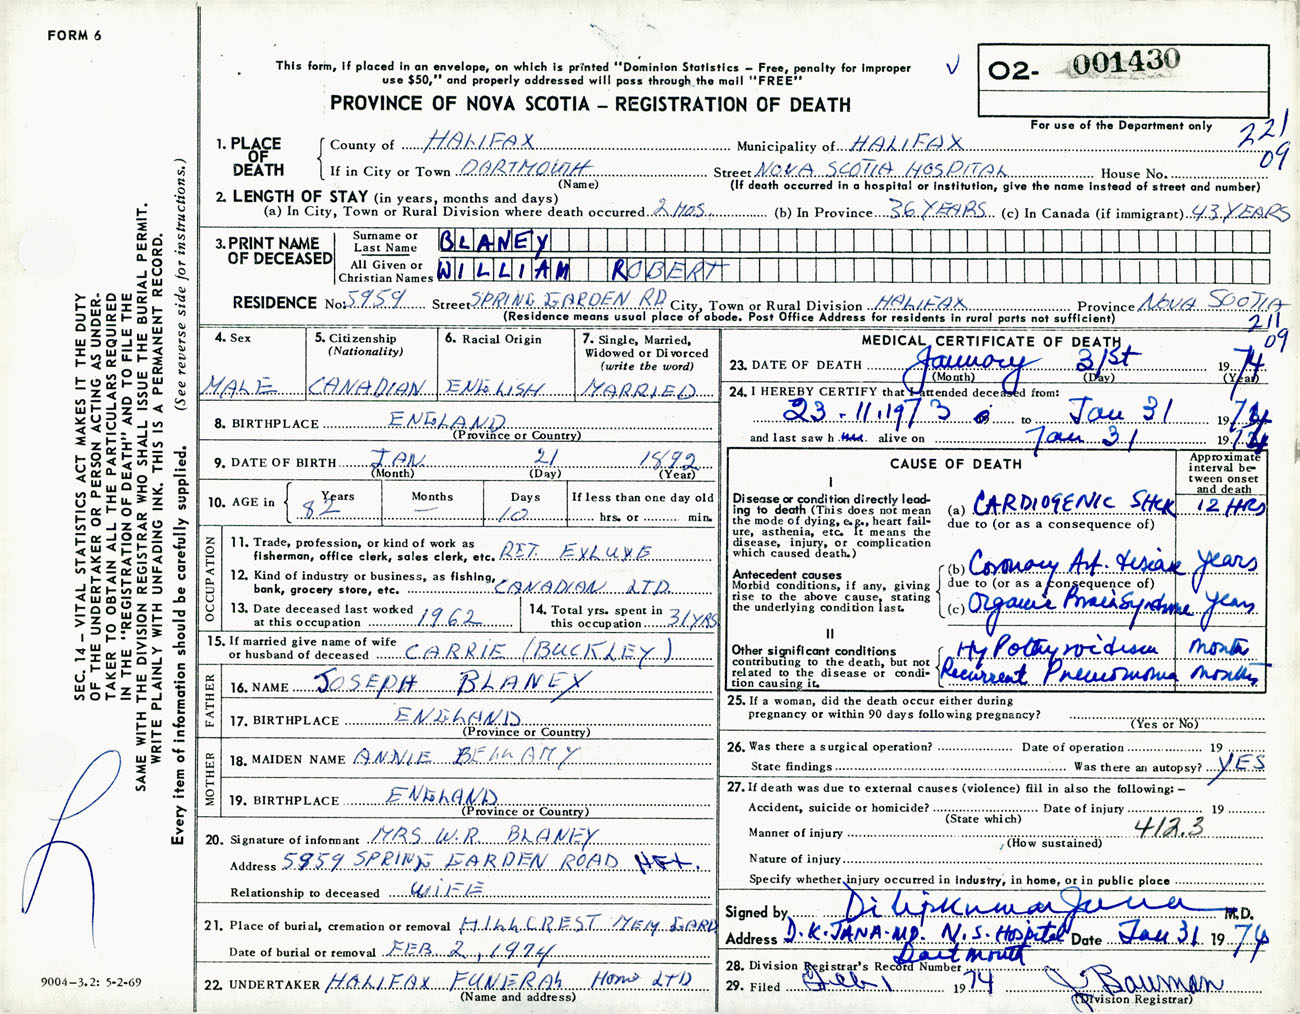 FORM 6
This form, if placed in an envelope, on which is printed "Dominion Statistics – Free, penalty for improper
use $50," and properly addressed will pass through the mail "FREE"
PROVINCE OF NOVA SCOTIA – REGISTRATION OF DEATH
O2- 001430
For use of the Department only
221
09
SEC. 14 – VITAL STATISTICS ACT MAKES IT THE DUTY
OF THE UNDERTAKER OR PERSON ACTING AS UNDER-
TAKER TO OBTAIN ALL THE PARTICULARS REQUIRED
IN THE "REGISTRATION OF DEATH" AND TO FILE THE
SAME WITH THE DIVISION REGISTRAR WHO SHALL ISSUE THE BURIAL PERMIT.
WRITE PLAINLY WITH UNFADING INK. THIS IS A PERMANENT RECORD.
Every item of information should be carefully supplied. (See reverse side for instructions.)
1. PLACE OF DEATH
County of HALIFAX Municipality of HALIFAX
If in City or Town DARTMOUTH Street NOVA SCOTIA HOSPITAL House No.
(Name) (If death occurred in a hospital or institution, give the name instead of street and number)
2. LENGTH OF STAY (in years, months and days)
(a) In City, Town or Rural Division where death occurred 2 MOS. (b) In Province 36 YEARS (c) In Canada (if immigrant) 43 YEARS
3. PRINT NAME OF DECEASED
Surname or Last Name BLANEY
All Given or Christian Names WILLIAM ROBERT
RESIDENCE No. 5959 Street SPRING GARDEN RD City, Town or Rural Division HALIFAX Province NOVA SCOTIA
(Residence means usual place of abode. Post Office Address for residents in rural parts not sufficient)
211
09
4. Sex MALE
5. Citizenship (Nationality) CANADIAN
6. Racial Origin ENGLISH
7. Single, Married, Widowed or Divorced (write the word) MARRIED
8. BIRTHPLACE ENGLAND
(Province or Country)
9. DATE OF BIRTH JAN. 21 1892
(Month) (Day) (Year)
10. AGE in Years 82 Months — Days 10 If less than one day old
hrs. or min.
OCCUPATION
11. Trade, profession, or kind of work as
fisherman, office clerk, sales clerk, etc. RET. EXLUXE
12. Kind of industry or business, as fishing,
bank, grocery store, etc. CANADIAN LTD
13. Date deceased last worked
at this occupation 1962
14. Total yrs. spent in
this occupation 31 YRS
15. If married give name of wife
or husband of deceased CARRIE (BUCKLEY)
FATHER
16. NAME JOSEPH BLANEY
17. BIRTHPLACE ENGLAND
(Province or Country)
MOTHER
18. MAIDEN NAME ANNIE BELLAMY
19. BIRTHPLACE ENGLAND
(Province or Country)
20. Signature of informant MRS W.R. BLANEY
Address 5959 SPRING GARDEN ROAD HFX.
Relationship to deceased WIFE
21. Place of burial, cremation or removal HILLCREST MEM GARD
Date of burial or removal FEB 2, 1974
22. UNDERTAKER HALIFAX FUNERAL Home LTD
(Name and address)
9004–3.2: 5-2-69
MEDICAL CERTIFICATE OF DEATH
23. DATE OF DEATH January 31st 1974
(Month) (Day) (Year)
24. I HEREBY CERTIFY that I attended deceased from:
23-11.1973 to Jan 31 1974
and last saw h im alive on Jan 31 1974
CAUSE OF DEATH
Approximate interval between onset and death
I
Disease or condition directly lead-
ing to death (This does not mean
the mode of dying, e.g., heart fail-
ure, asthenia, etc. It means the
disease, injury, or complication
which caused death.)
(a) CARDIOGENIC SHCK 12 HRS
due to (or as a consequence of)
Antecedent causes
Morbid conditions, if any, giving
rise to the above cause, stating
the underlying condition last.
(b) Coronary Art. disease years
due to (or as a consequence of)
(c) Organic Brain Syndrome years
II
Other significant conditions
contributing to the death, but not
related to the disease or condi-
tion causing it.
Hypothyroidism month
Recurrent Pneumonia months
25. If a woman, did the death occur either during
pregnancy or within 90 days following pregnancy?
(Yes or No)
26. Was there a surgical operation? Date of operation 19
State findings Was there an autopsy? YES
27. If death was due to external causes (violence) fill in also the following: –
Accident, suicide or homicide? Date of injury 19
(State which)
Manner of injury 412.3
(How sustained)
Nature of injury
Specify whether injury occurred in industry, in home, or in public place
Signed by Dilipkumar Jana M.D.
Address D.K. JANA-MD. N.S. Hospital Date Jan 31 1974
Dartmouth
28. Division Registrar's Record Number
29. Filed Feb 1 1974 J Bauman
(Division Registrar)